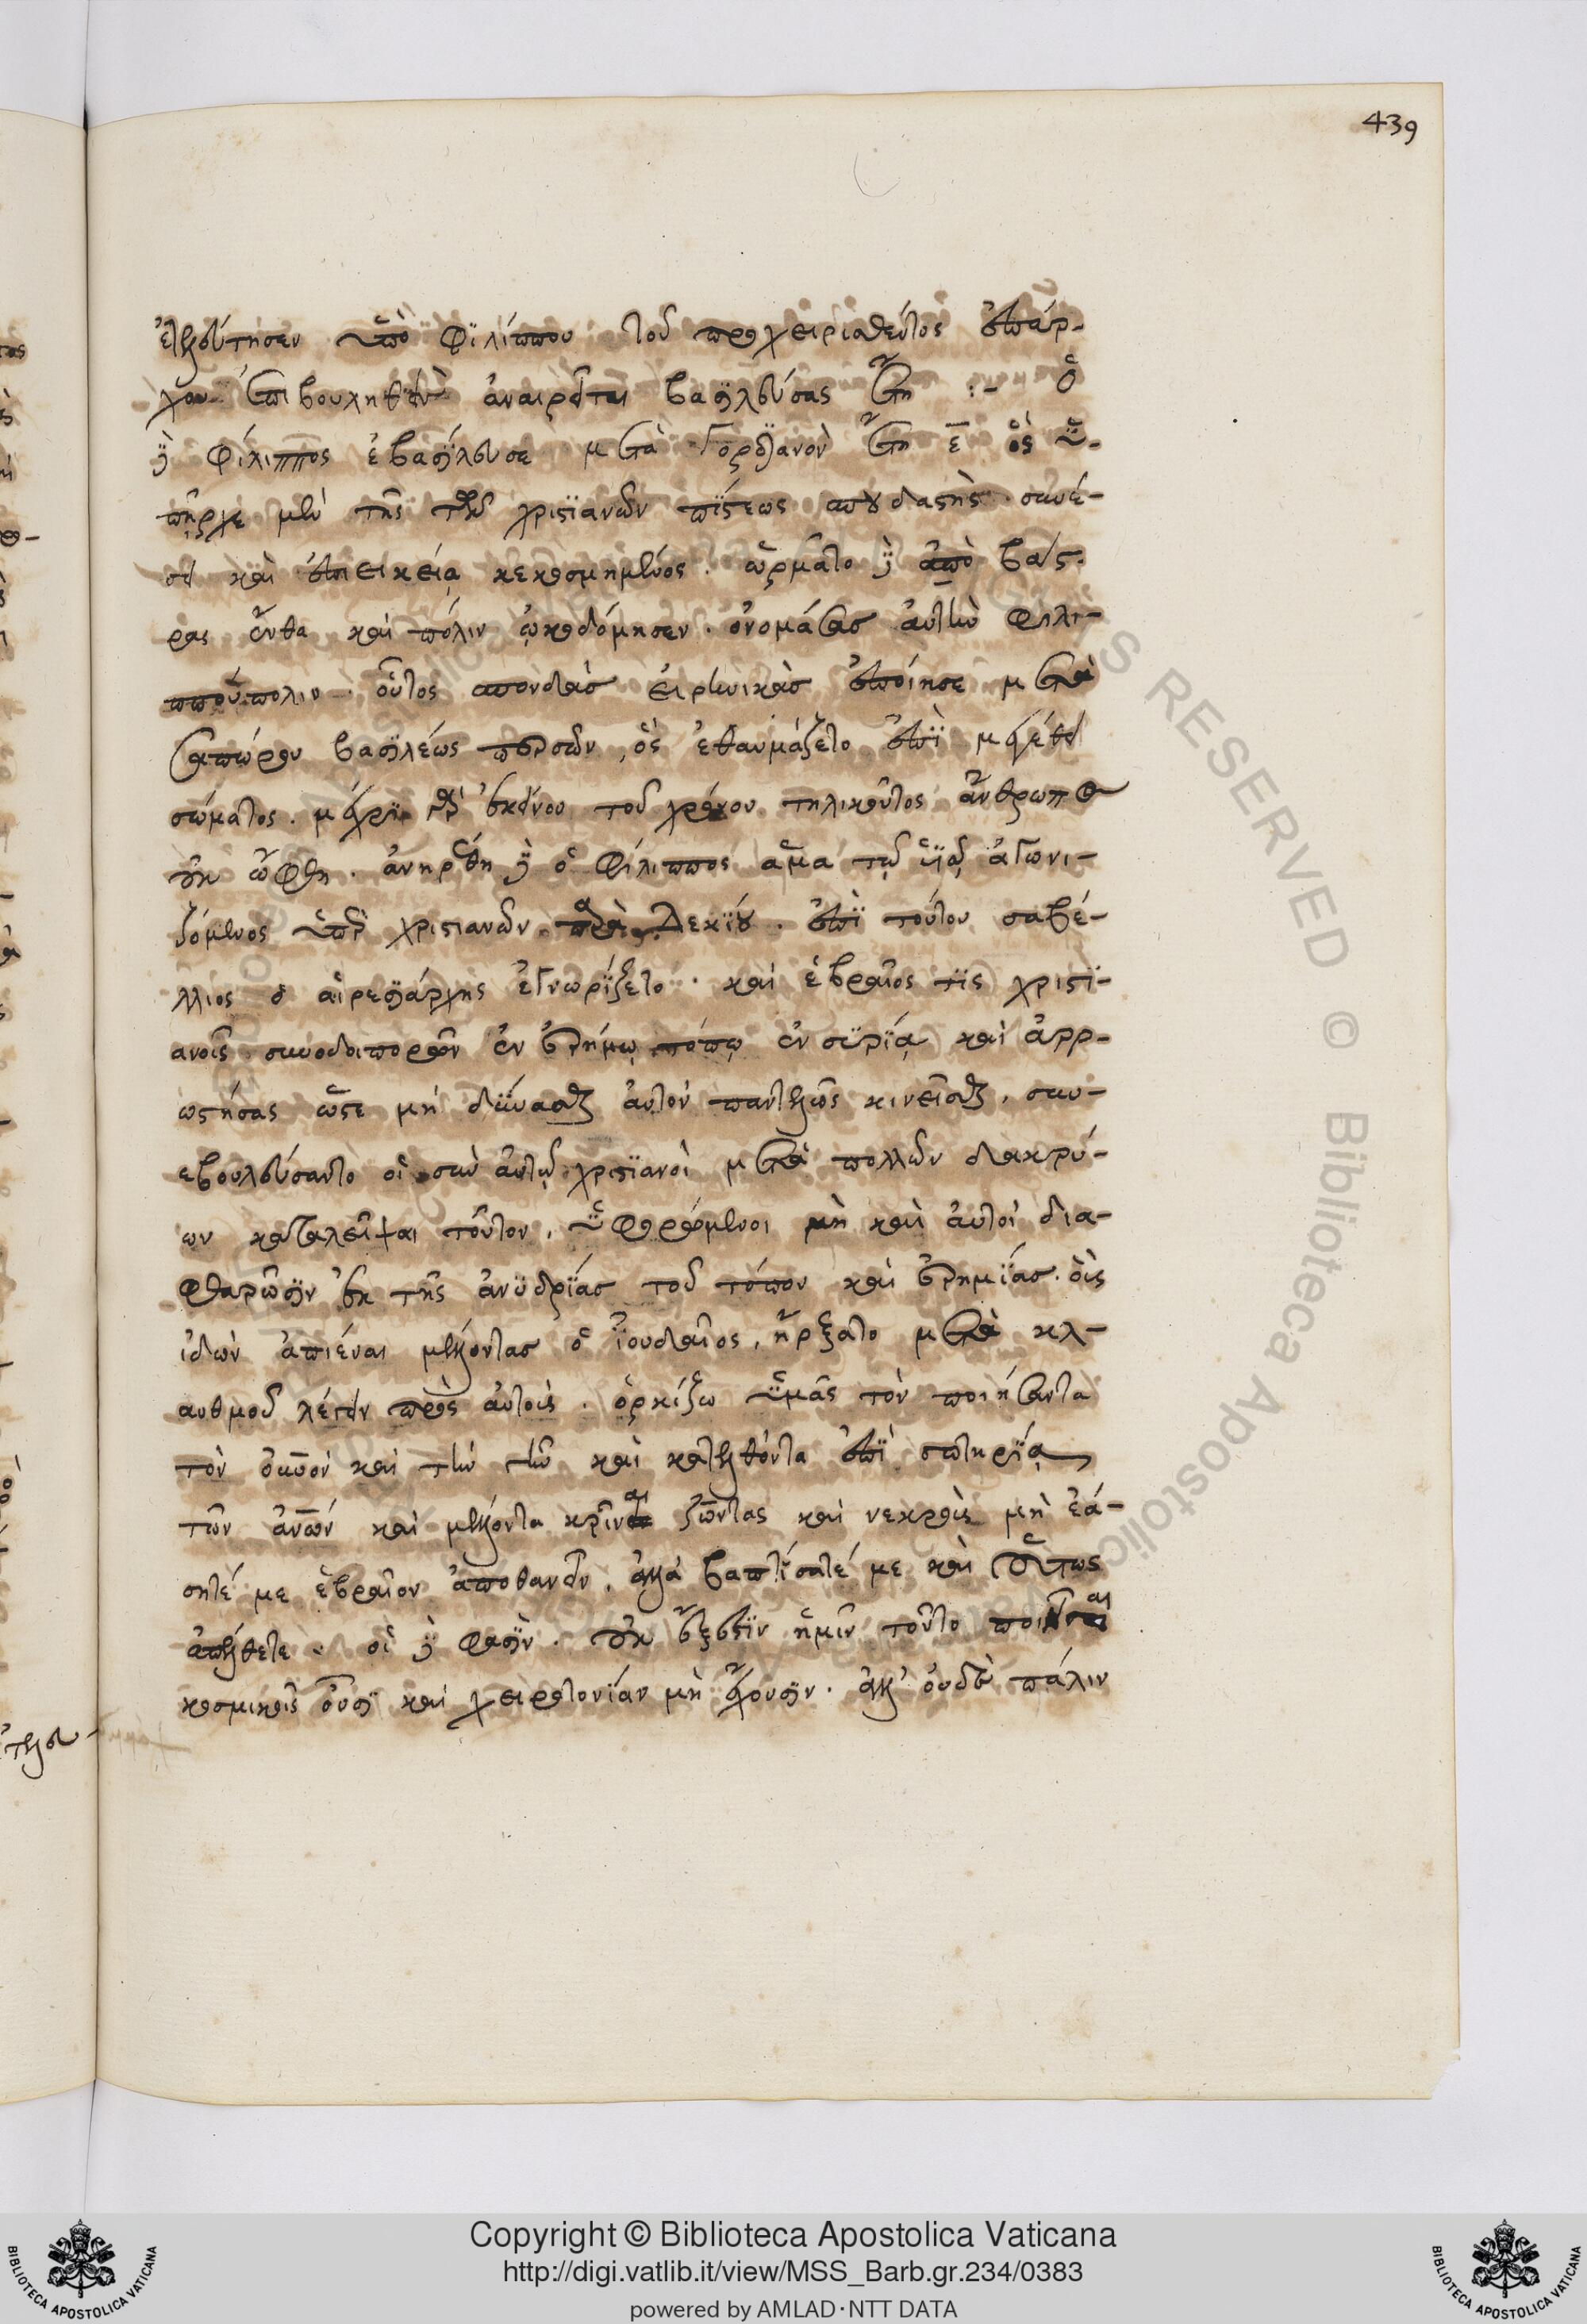 439
ἐτελεύτησεν ὑπὸ Φιλίππου τοῦ προχειρισθέντος ἐπάρ-
χου ἐπιβουλευθεὶς ἀναιρεῖται βασιλεύσας ἔτη :- Ὁ
δὲ Φίλιππος ἐβασίλευσε μετὰ Γορδιανὸν ἔτη ε̅ ὃς ὑ-
πῆρχε μὲν τῆς τῶν χριστιανῶν πίστεως σπουδαστὴς συνέ-
σει καὶ ἐπιεικείᾳ κεκοσμημένος. ὡρμᾶτο δὲ ἀπὸ βόστ-
ρας ἔνθα καὶ πόλιν ᾠκοδόμησεν. ὀνομάσας αὐτὴν Φιλι-
ππούπολιν. οὗτος σπονδὰς εἰρηνικὰς ἐποίησε μετὰ
Σαπώρου βασιλέως περσῶν, ὃς ἐθαυμάζετο ἐπὶ μεγέθει
σώματος. μέχρι γὰρ ἐκείνου τοῦ χρόνου τηλικοῦτος ἄνθρωπος
οὐκ ὤφθη. ἀνῃρέθη δὲ ὁ Φίλιππος ἅμα τῷ υἱῷ ἀγωνι-
ζόμενος ὑπὲρ χριστιανῶν παρὰ Δεκίου. ἐπὶ τούτου σαβέ-
λλιος ὁ αἱρεσιάρχης ἐγνωρίζετο. καὶ ἑβραῖος τὶς χριστι-
ανοῖς συνοδοιπορῶν ἐν ἐρήμῳ τόπῳ ἐν συρίᾳ καὶ ἀρρ-
ωστήσας ὥστε μὴ δύνασθαι αὐτὸν παντελῶς κινεῖσθαι, συν-
εβουλεύσαντο οἱ σὺν αὐτῷ χριστιανοὶ μετὰ πολλῶν δακρύ-
ων καταλεῖψαι τοῦτον, ὑφορώμενοι μὴ καὶ αὐτοὶ δια-
φθαρῶσιν ἐκ τῆς ἀνυδρίας τοῦ τόπου καὶ ἐρημίας. οἷς
ἰδὼν ἀπιέναι μέλλοντας ὁ ἰουδαῖος, ἤρξατο μετὰ κλ-
αυθμοῦ λέγειν πρὸς αὐτούς. ὁρκίζω ὑμᾶς τὸν ποιήσαντα
τὸν οὐρανὸν καὶ τὴν γῆν καὶ κατελθόντα ἐπὶ σωτηρίᾳ
τῶν ἀν̅ων καὶ μέλλοντα κρῖναι ζῶντας καὶ νεκροὺς μὴ ἐά-
σητέ με ἑβραῖον ἀποθανεῖν, ἀλλὰ βαπτίσατέ με καὶ οὕτως
ἀπέλθετε. οἱ δὲ φασὶν. οὐκ ἔξεστιν ἡμῖν τοῦτο ποιῆσαι
κοσμικοῖς οὖσι καὶ χειροτονίαν μὴ ἔχουσιν. ἀλλ' οὐδὲ πάλιν
Copyright © Biblioteca Apostolica Vaticana
http://digi.vatlib.it/view/MSS_Barb.gr.234/0383
powered by AMLAD·NTT DATA